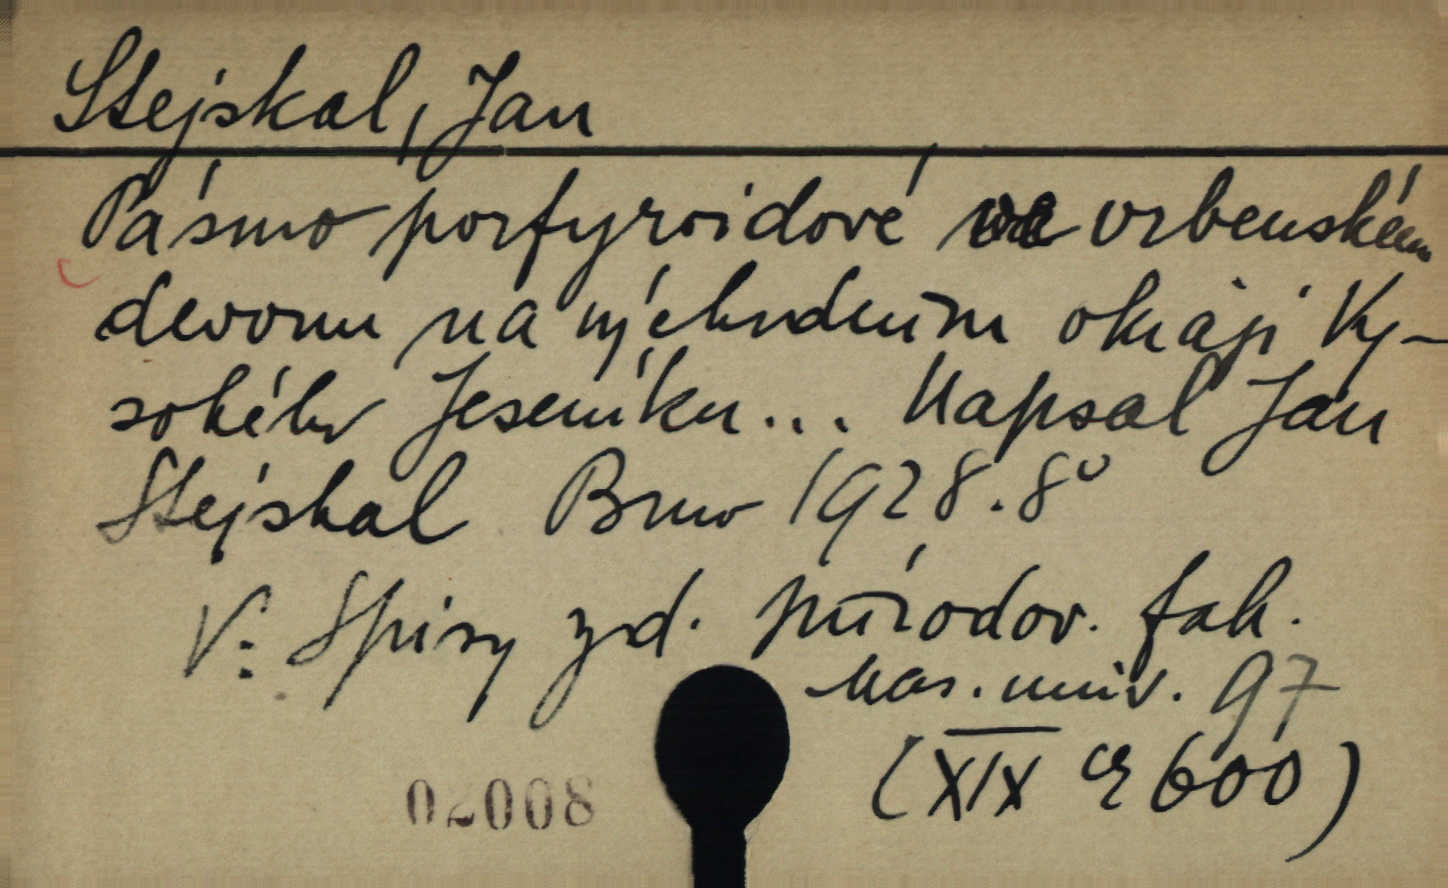 Stejskal, Jan
Pásmo porfyroidové ve vrbenském
devonu na východním okraji Vy-
sokého Jeseníku... Napsal Jan
Stejskal Brno 1928. 8°
V: Spisy vyd. přírodov. fak.
Mas. univ. 97
(XIX cq 600)
02008